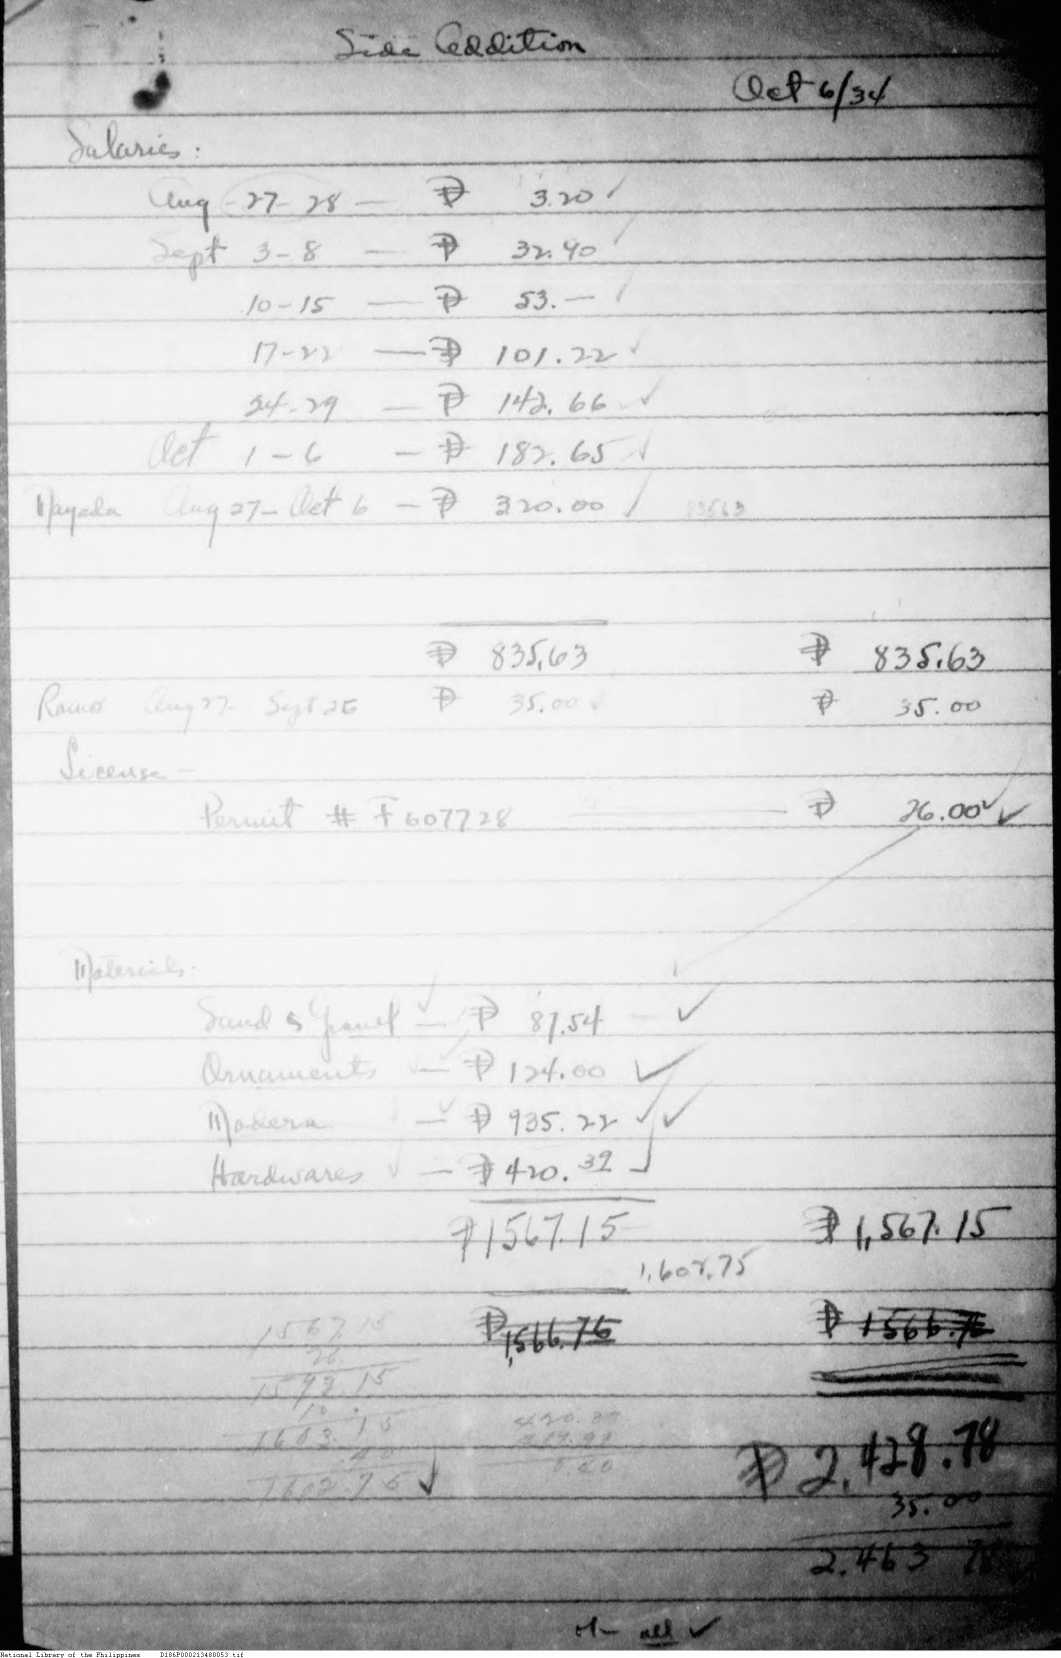 Side Addition
Oct 6/34
Salaries:
Aug - 27 - 28 — ₱ 3.20 ✓
Sept 3 - 8 — ₱ 32.90 ✓
10 - 15 — ₱ 53.— ✓
17 - 22 — ₱ 101.22 ✓
24 - 29 — ₱ 142.66 ✓
Oct 1 - 6 — ₱ 182.65 ✓
Aug 27 - Oct 6 — ₱ 320.00 ✓ 83563
₱ 835.63 ₱ 835.63
Aug 27 - Sept 26 ₱ 35.00 ✓ ₱ 35.00
License —
Permit # F 607728 — ₱ 26.00 ✓✓
Materials.
Sand & Gravel ✓ — ₱ 87.54 — ✓
Ornaments ✓ — ₱ 124.00 ✓
Madera ✓ — ₱ 935.22 ✓✓
Hardwares ✓ — ₱ 420.39
₱ 1567.15 ₱ 1,567.15
1,602.75
₱ 1,566.75 ₱ 1566.75
1567.15
26.
1593.15
10.
1603.15
.40
1602.75 ✓
420.39
419.99
0.40
₱ 2,428.78
35.00
2,463 78
all ✓
National Library of the Philippines D186P000213480053.tif